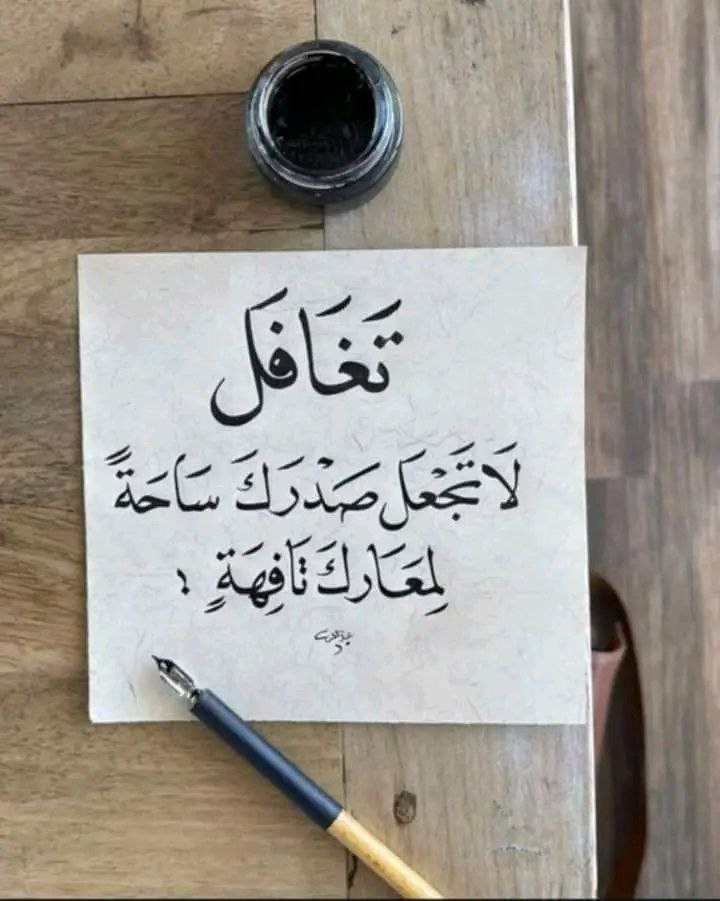 تَغَافَل
لَا تَجْعَل صَدْرَكَ سَاحَةً
لِمَعَارك تَافِهَةٍ ؛